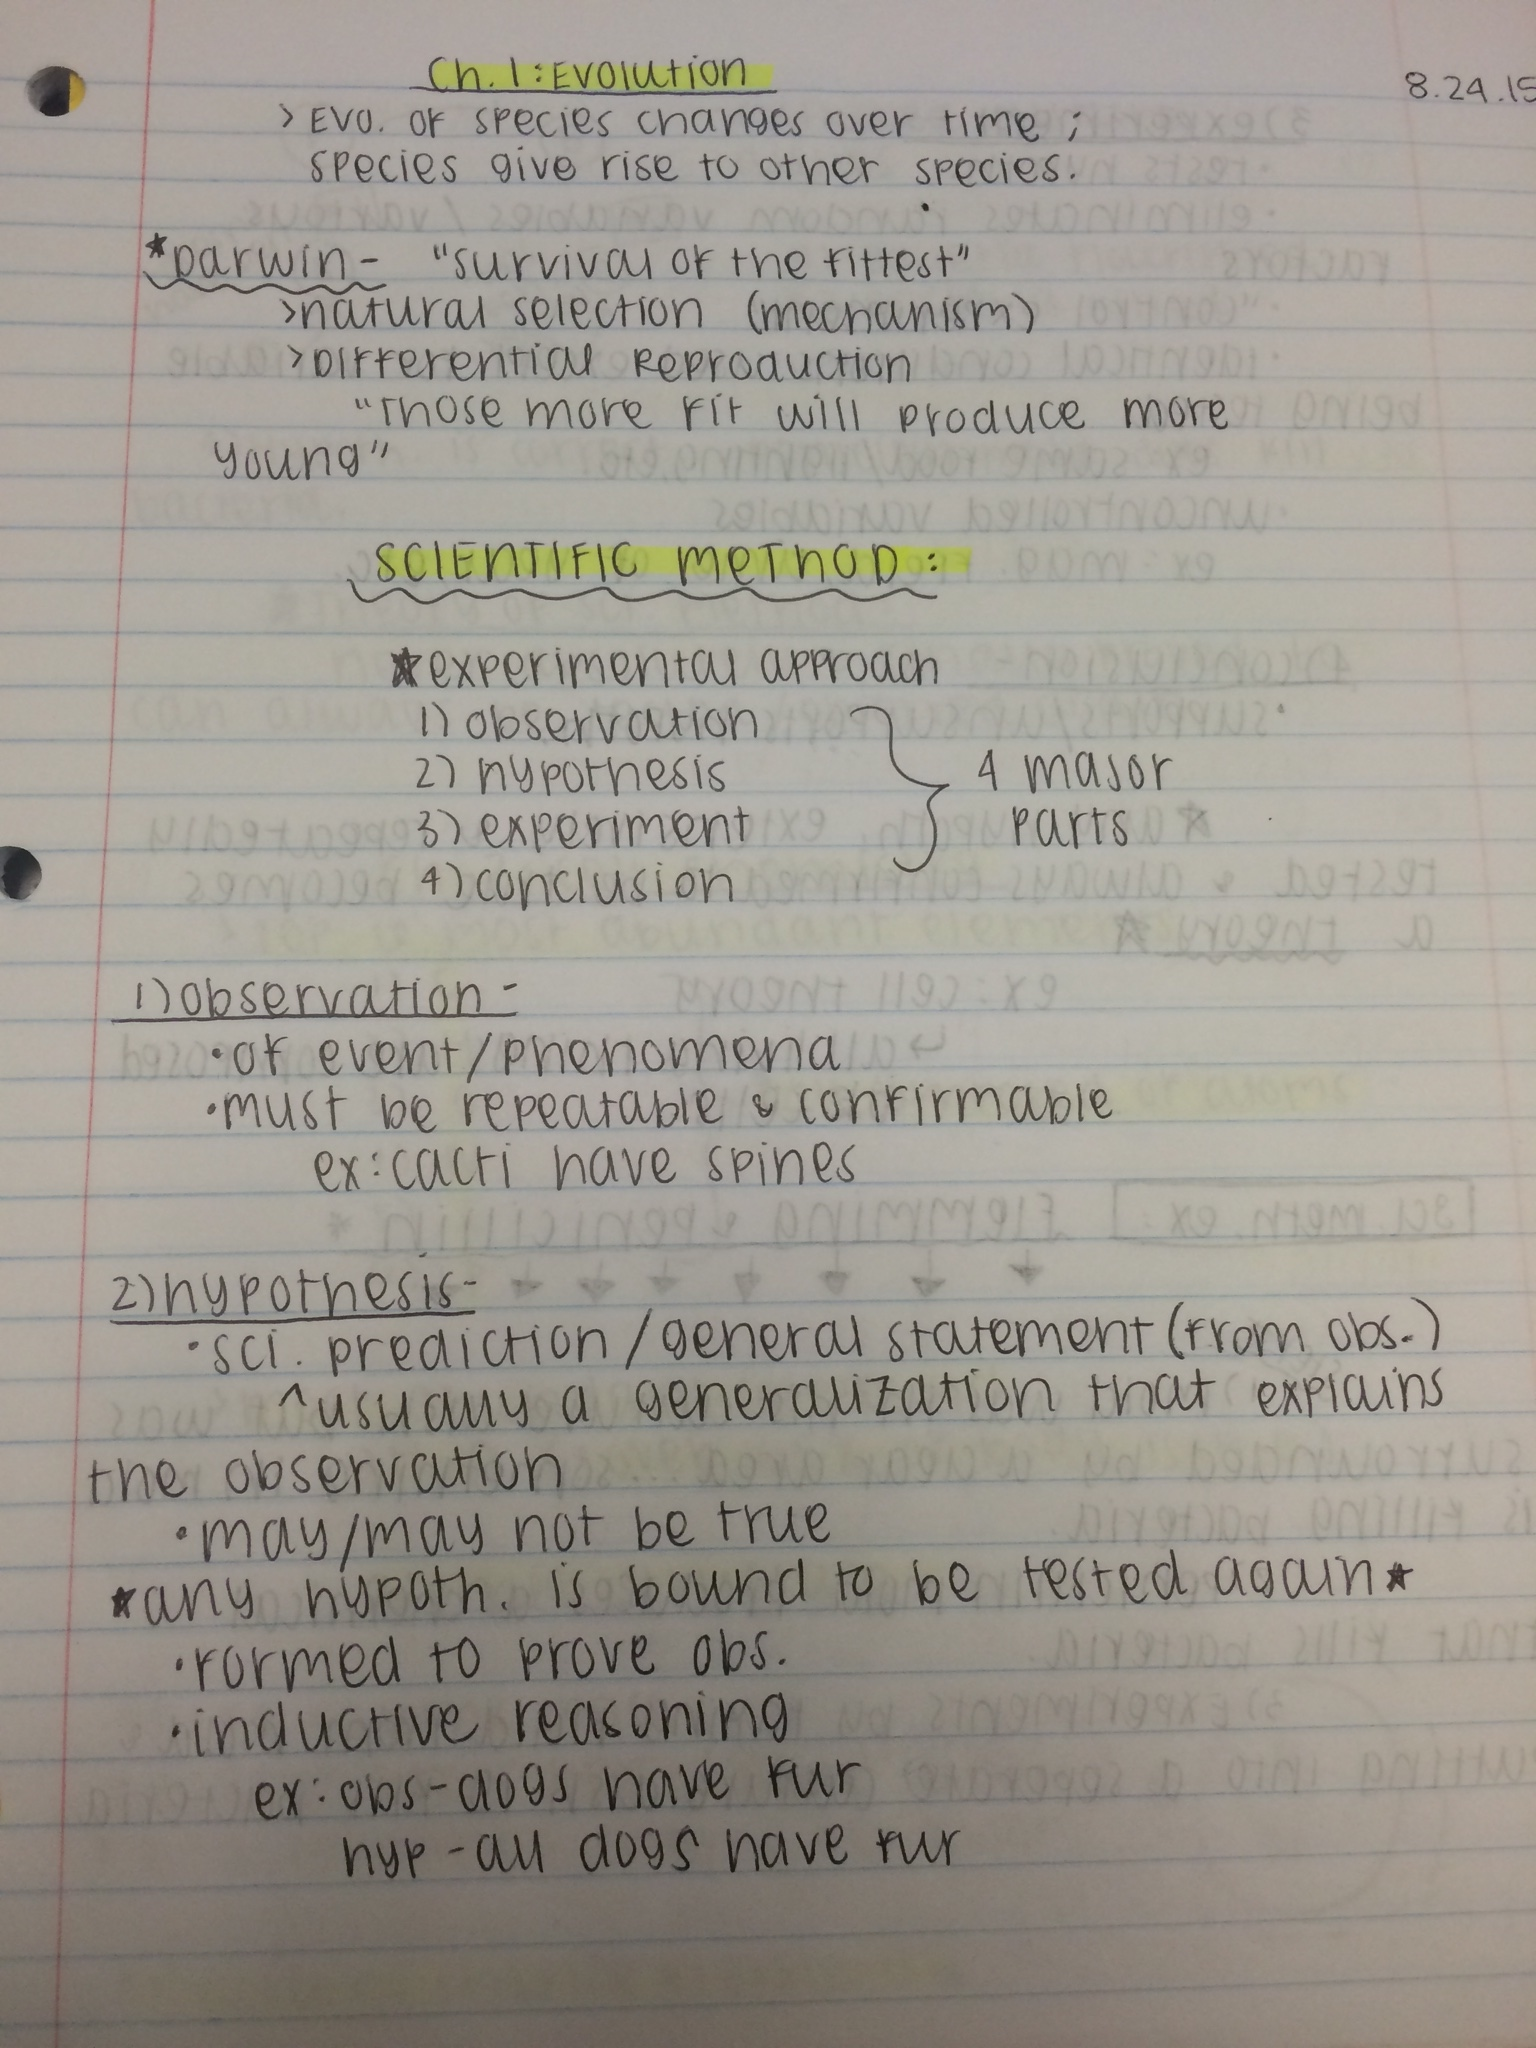 Ch. 1: Evolution
8.24.15
> Evo. of species changes over time ;
species give rise to other species.
*Darwin- "survival of the fittest"
>natural selection (mechanism)
>Differential Reproduction
"Those more fit will produce more
young"
SCIENTIFIC METHOD:
*experimental approach
1) observation
2) hypothesis
3) experiment
4) conclusion
4 major
parts
1) observation-
•of event/phenomena
•must be repeatable & confirmable
ex: cacti have spines
2) hypothesis-
•sci. prediction/general statement (from obs.)
^usually a generalization that explains
the observation
•may/may not be true
*any hypoth. is bound to be tested again*
•formed to prove obs.
•inductive reasoning
ex: obs-dogs have fur
hyp-all dogs have fur